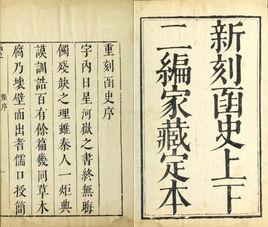 新刻函史上下
二編家藏定本
重刻函史序
宇内日星河嶽之書終無晦
殘缺之理雖秦人一炬典
謨訓誥百有餘篇幾同草木
腐乃壞壁而出者儒口授簡